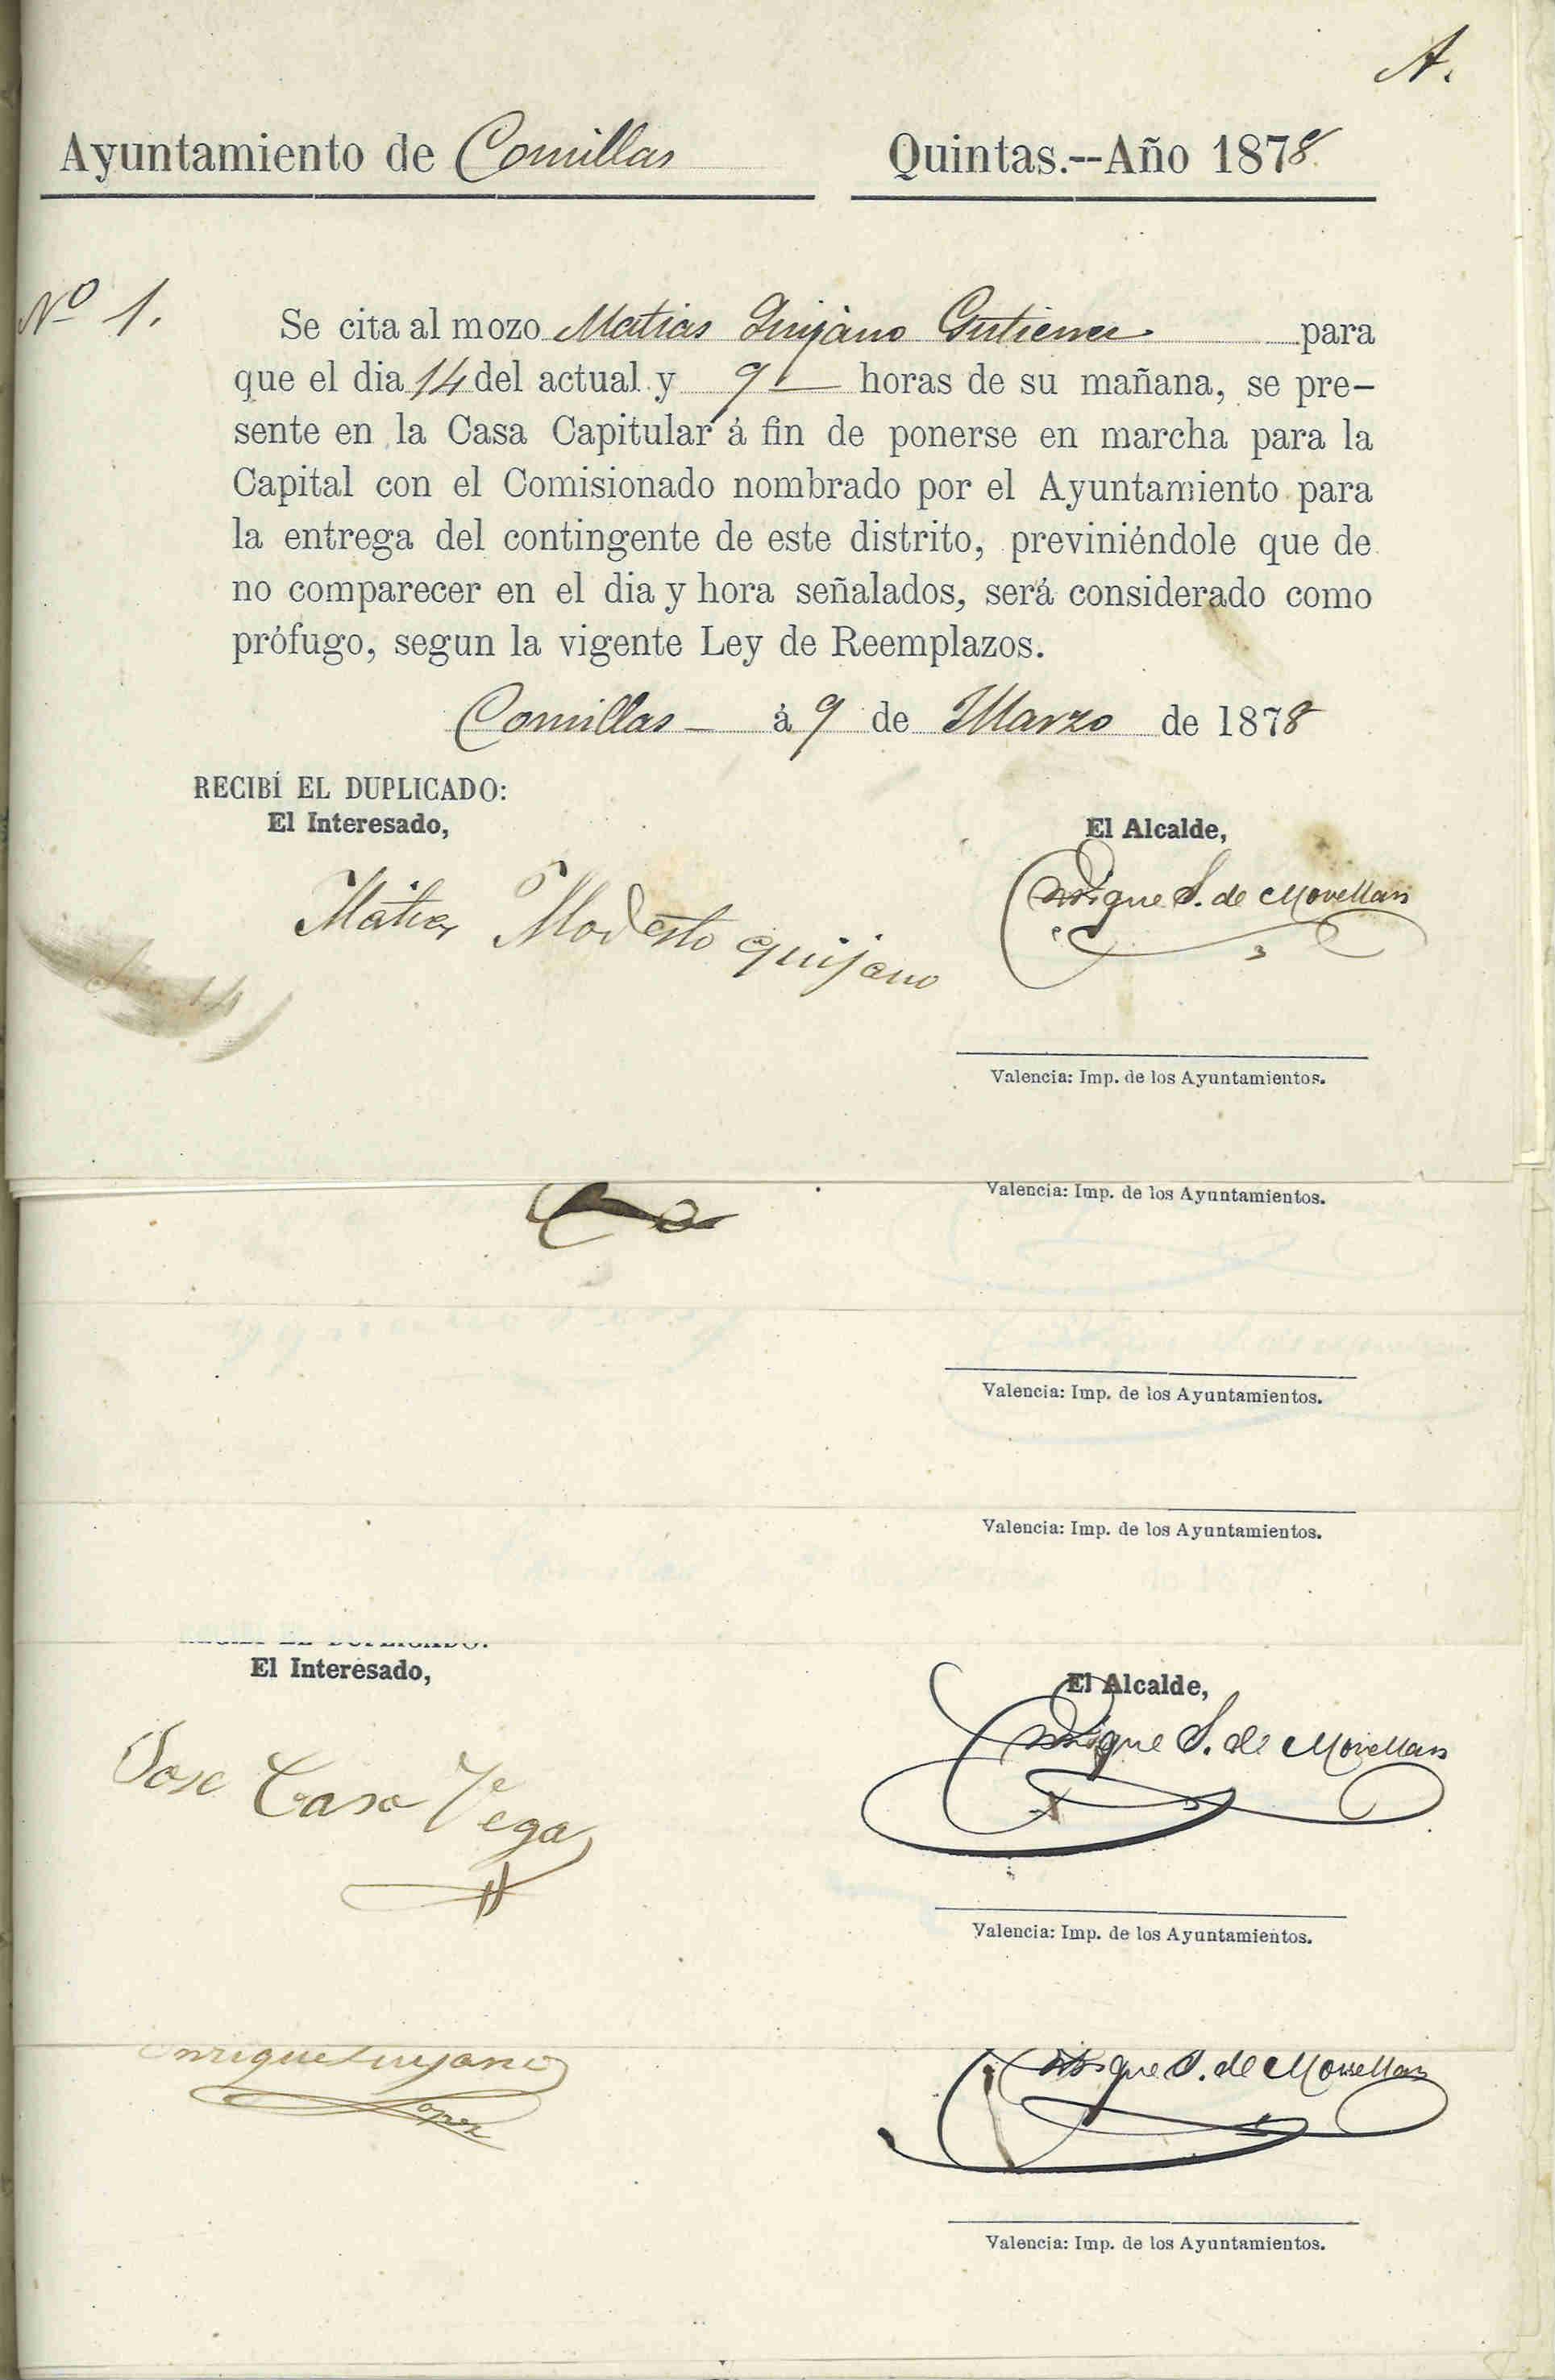 A.
Ayuntamiento de Comillas Quintas.--Año 1878.
Nº 1.
Se cita al mozo Matias Quijano Gutierrez para
que el dia 14 del actual y 9 horas de su mañana, se pre-
sente en la Casa Capitular á fin de ponerse en marcha para la
Capital con el Comisionado nombrado por el Ayuntamiento para
la entrega del contingente de este distrito, previniéndole que de
no comparecer en el dia y hora señalados, será considerado como
prófugo, segun la vigente Ley de Reemplazos.
Comillas - á 9 de Marzo de 1878
RECIBÍ EL DUPLICADO:
El Interesado, El Alcalde,
Matias Modesto quijano
Enrique S. de Movellan
Valencia: Imp. de los Ayuntamientos.
Valencia: Imp. de los Ayuntamientos.
Valencia: Imp. de los Ayuntamientos.
Valencia: Imp. de los Ayuntamientos.
El Interesado, El Alcalde,
Jose Caso Vega
Enrique S. de Movellan
Valencia: Imp. de los Ayuntamientos.
Enrique Quijano
Lopez
Enrique S. de Movellan
Valencia: Imp. de los Ayuntamientos.